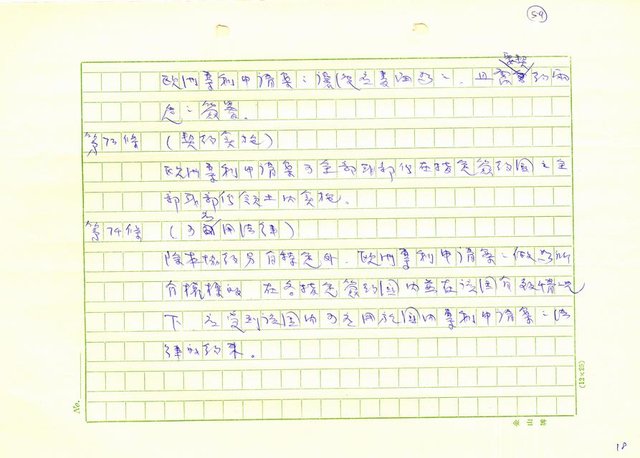 54
歐洲專利申請案之讓與應以書面為之、且需契約兩
造之簽署。
第73條 (契約實施)
歐洲專利申請案可全部或部份在指定簽約國之全
部或部份領土內實施。
第74條 (可適用法律)
除本協約另有規定外、歐洲專利申請案之做為所
有權標的 在各指定簽約國內並在該國有效情況
下 應受到該國內可適用於國內專利申請案之法
律的約束。
No.
(12×25)
18